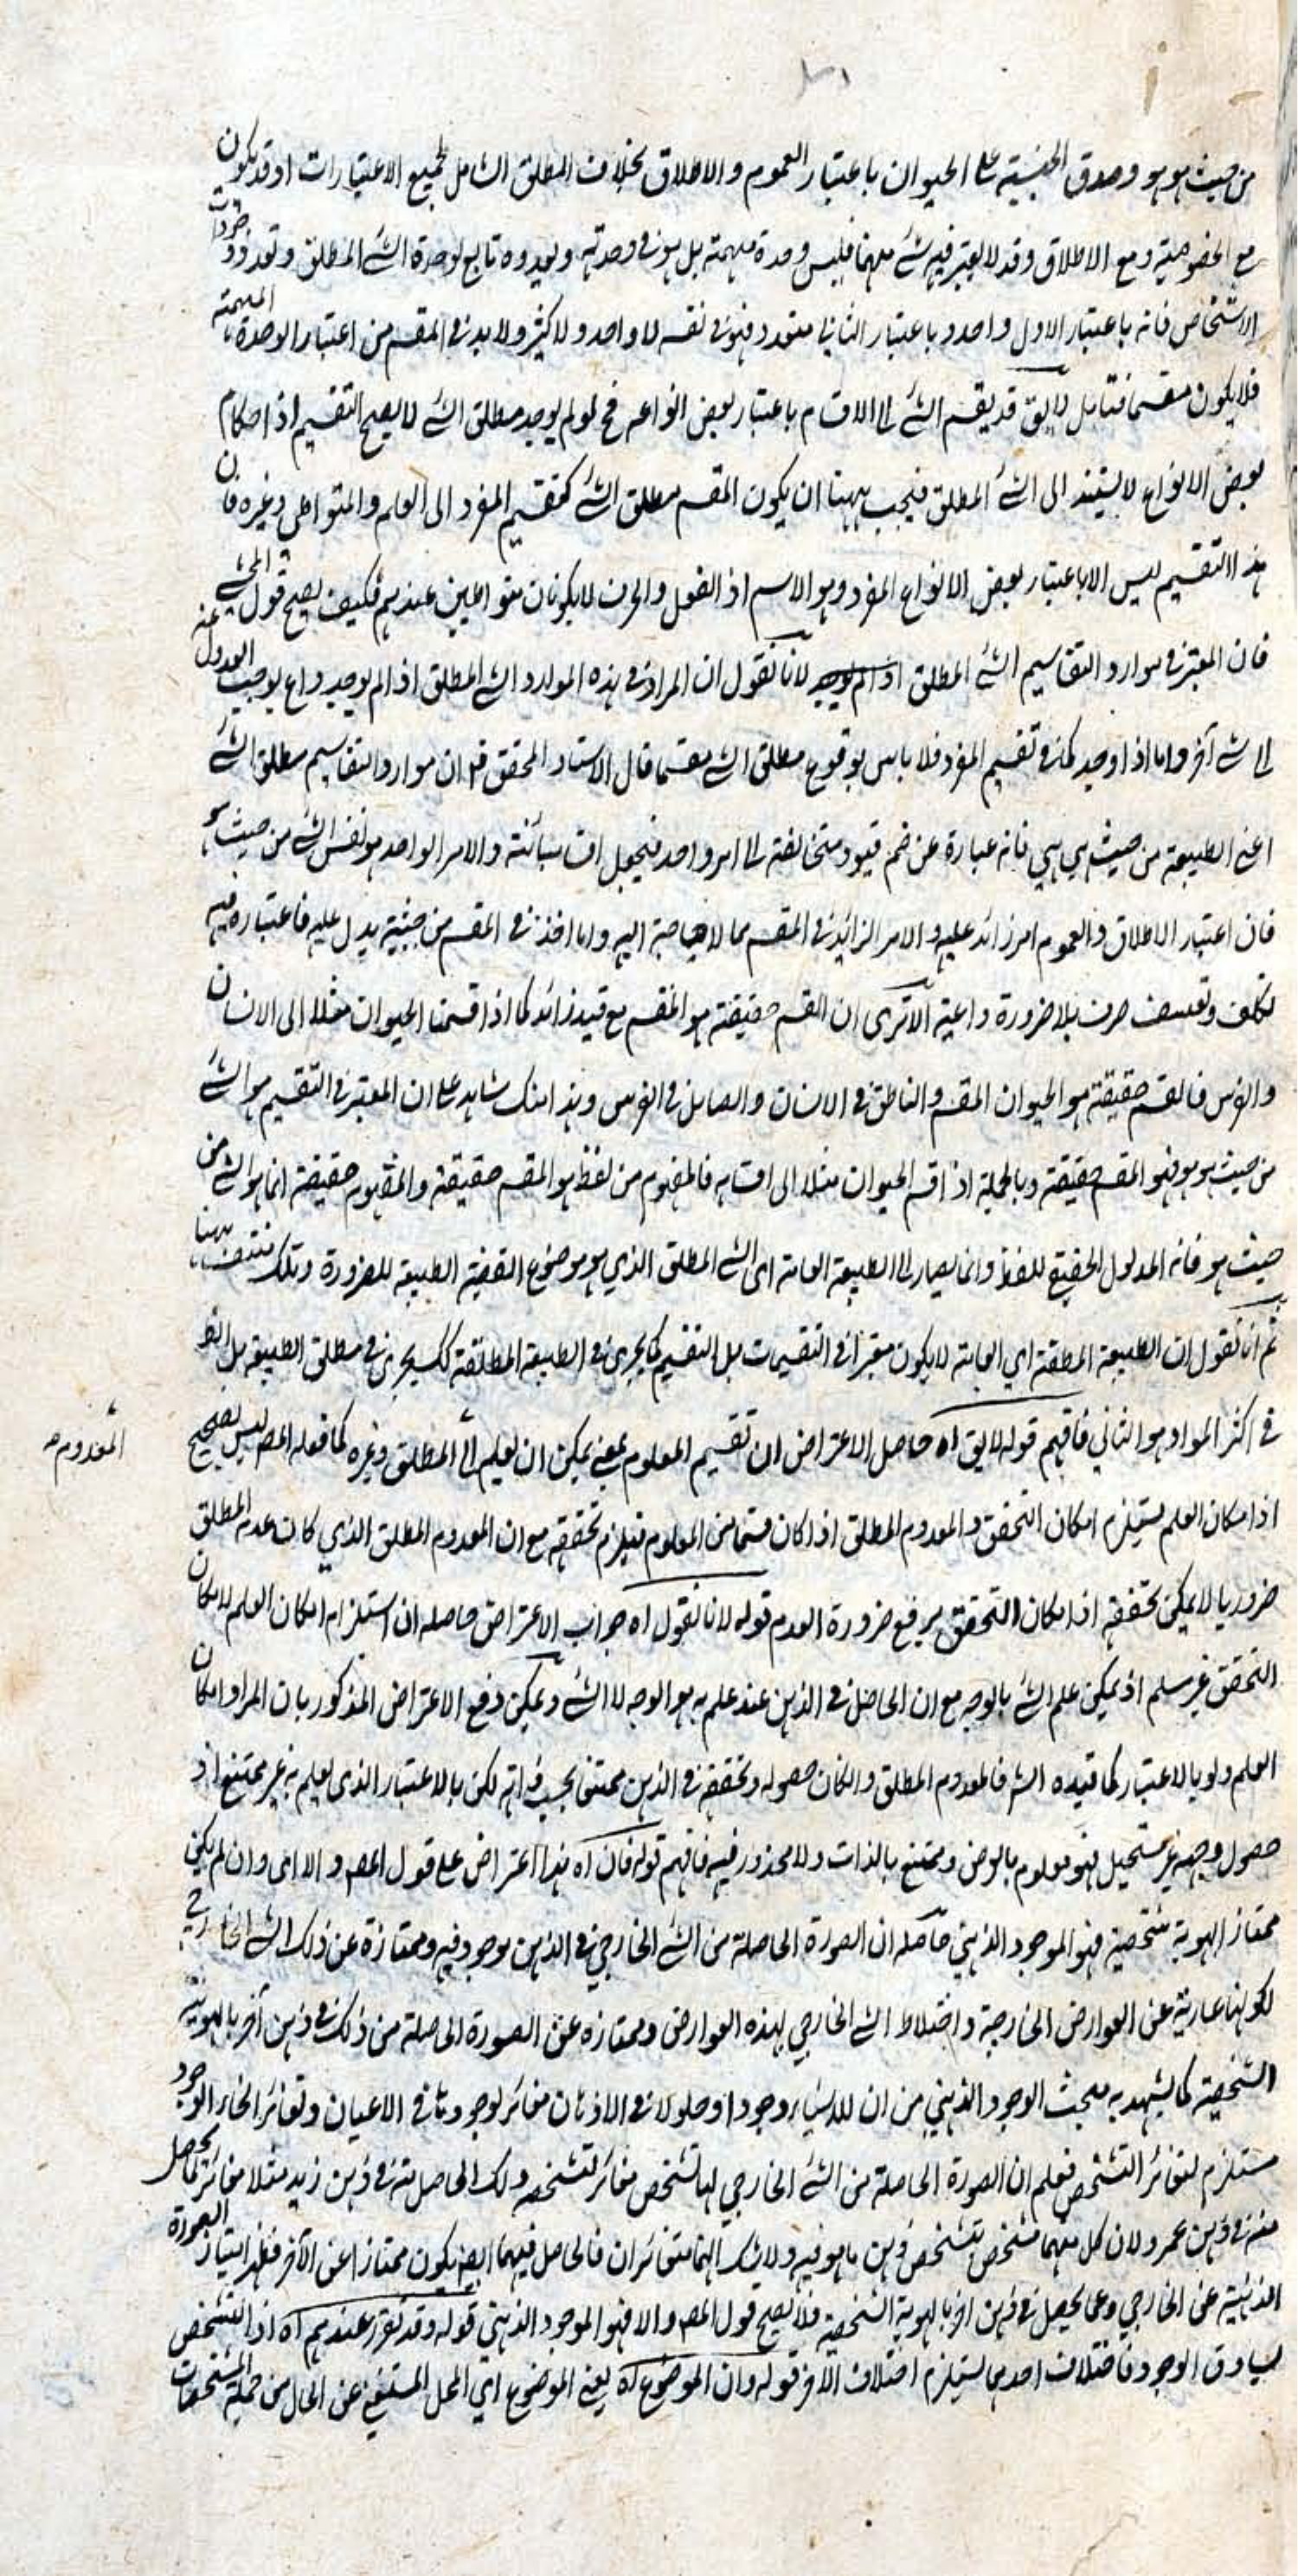 من حيث هو هو وصدق الجنسية على الحيوان باعتبار العموم والاطلاق بخلاف المطلق الشامل لجميع الاعتبارات اذ قد يكون
مع الخصوصية ومع الاطلاق وقد لا يعتبر فيه شئ منهما فليس وحدة مبهمة بل هو في وحدته وتعدده تابع لوحدة الشئ المطلق وتعدد
الاشخاص فانه باعتبار الاول واحد وباعتبار الثاني متعدد فهو في نفسه لا واحد ولا كثير ولا بد في المقسم من اعتبار الوحدة المبهمة
فلا يكون مقسما فتامل لا يق قد يقسم الشئ الى الاقسام باعتبار بعض انواعه فح لو لم يوجد مطلق الشئ لا يصح التقسيم اذ احكام
بعض الانواع لا يستند الى الشئ المطلق فيجب ههنا ان يكون المقسم مطلق الشئ كتقسيم المفرد الى العلم والمتواطى وغيره فان
هذا التقسيم ليس الا باعتبار بعض الانواع المفرد وهو الاسم اذ الفعل والحرف لا يكونان متواطيين عندهم فكيف يصح قول المحشي
فان المعتبر في موارد التقاسيم الشئ المطلق لانا نقول ان المراد في هذه الموارد الشئ المطلق اذا لم يوجد داع يوجب العدول عنه
الى شئ آخر واما اذا وجد كما في تقسيم المفرد فلا باس بوقوع مطلق الشئ مقسما قال الاستاد المحقق ان موارد التقاسيم مطلق الشئ
اعني الطبيعة من حيث هي هي فانه عبارة عن ضم قيود متخالفة الى امر واحد فيحصل اقسام متبائنة والامر الواحد هو نفس الشئ من حيث هو
فان اعتبار الاطلاق والعموم امر زائد عليه والامر الزائد في المقسم مما لا حاجة اليه واما اخذه في المقسم من حيثية يدل عليه فاعتباره فيه
تكلف وتعسف صرف بلا ضرورة داعية الا ترى ان القسم حقيقته هو المقسم مع قيد زائد كما اذا قسمنا الحيوان مثلا الى الانسان
والفرس فالقسم حقيقة هو الحيوان المقسم والناطق في الانسان والصاهل في الفرس وهذا شاهد على ان المعتبر في التقسيم هو الشئ
من حيث هو هو فهو المقسم حقيقة وبالجملة اذا قسم الحيوان مثلا الى اقسامه فالمفهوم من لفظ هو المقسم حقيقة والمفهوم حقيقة انما هو الشئ من
حيث هو فانه المدلول الحقيقي للفظ وانما يصار الى الطبيعة العامة اى الشئ المطلق الذي هو موضوع القضية الطبيعية للضرورة وتلك منتف ههنا
ثم انا نقول ان الطبيعة المطلقة اي العامة لا يكون معتبرا في التقسيمات بل التقسيم كما يجري في الطبيعة المطلقة كك يجري في مطلق الطبيعة بل
في اكثر المواد هو الثاني فافهم قوله لا يق اه حاصل الاعتراض ان تقسيم المعلوم بمعنى يمكن ان يعلم الى المطلق وغيره كما فعله المص ليس بصحيح
المعدوم صه
اذ امكان العلم يستلزم امكان التحقق والمعدوم المطلق اذا كان قسما من المعلوم فيلزم تحققه مع ان المعدوم المطلق الذي كان عدمه المطلق
ضروريا لا يمكن تحققه اذ امكان التحقق يرفع ضرورة العدم قوله لانا نقول اه جواب الاعتراض حاصله ان استلزام امكان العلم لامكان
التحقق غير مسلم اذ يمكن علم الشئ بالوجه مع ان الحاصل في الذهن عند علمه به هو الوجه لا الشئ ويمكن دفع الاعتراض المذكور بان المراد امكان
العلم ولو بالاعتبار كما قيده الش فالمعدوم المطلق وان كان حصوله وتحققه في الذهن ممتنع بحسب ذاته لكن بالاعتبار الذي يعلم به غير ممتنع اذ
حصول وجهه غير مستحيل فهو معلوم بالعرض وممتنع بالذات ولا محذور فيه فافهم قوله فان اه هذا اعتراض على قول المص والا اى وان لم يكن
ممتاز الهوية شخصية فهو الموجود الذهني حاصله ان الصورة الحاصلة من الشئ الخارجي في الذهن موجود فيه وممتازة عن ذلك الشئ الخارجي
لكونها عارية عن العوارض الخارجة واختلاط الشئ الخارجي بهذه العوارض وممتازه عن الصورة الحاصلة من ذلك في ذهن آخر بالهوية
الشخصية كما يشهد به مبحث الوجود الذهني من ان للاشياء وجودا وحلولا في الاذهان مغائر لوجودها في الاعيان وتغائر انحاء الوجود
مستلزم لتغائر التشخص فعلم ان الصورة الحاصلة من الشئ الخارجي لها تشخص مغائر لتشخصه وتلك الحاصلة في ذهن زيد مثلا مغائر لما يحصل
منه في ذهن عمرو لان كل منهما متشخص بتشخص ذهن ما هو فيه ولا شك انهما متغائران فالحاصل فيهما ايضا يكون ممتازا عن الآخر فظهر امتياز الصورة
الذهنية عن الخارجي وعما يحصل في ذهن آخر بالهوية الشخصية فلا يصح قول المص والا فهو الموجود الذهني قوله وقد تقرر عندهم اه اذ التشخص
يساوق الوجود فاختلاف احدهما يستلزم اختلاف الآخر قوله وان الموضوع اه يعني الموضوع اي المحل المستغني عن الحال من جملة المشخصات